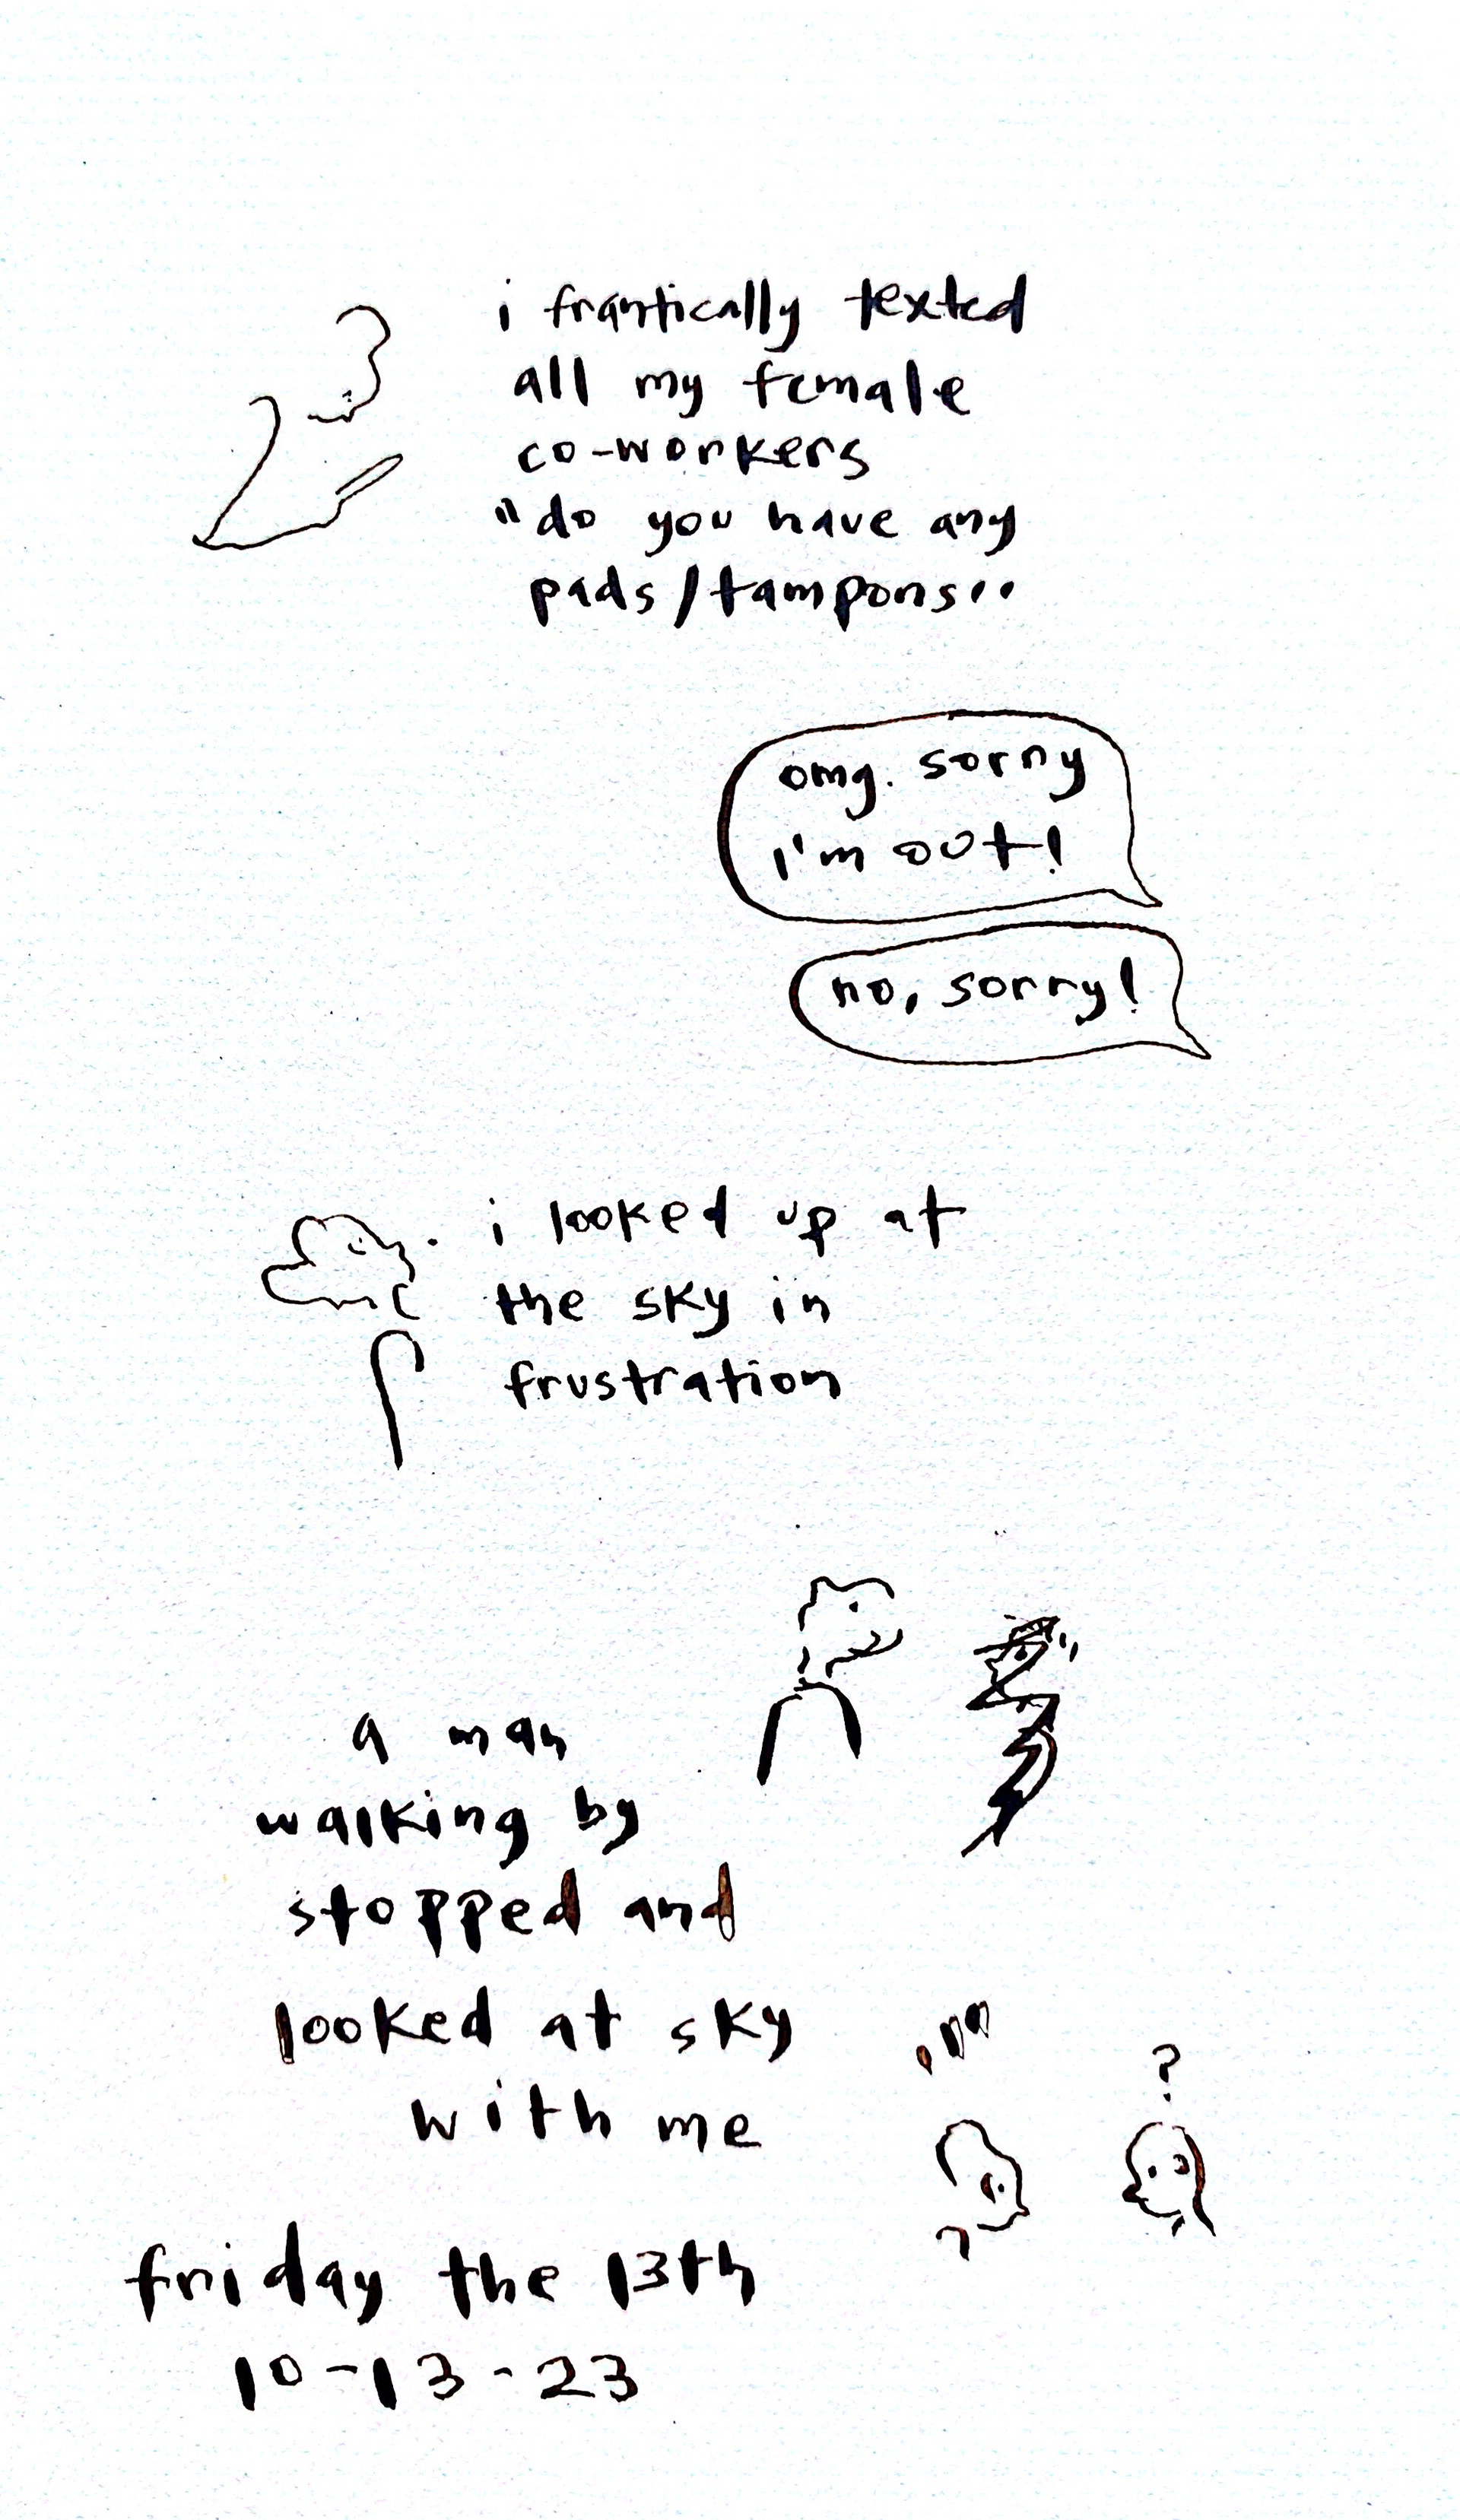 i frantically texted
all my female
co-workers
"do you have any
pads/tampons"
omg. sorry
i'm out!
no, sorry!
i looked up at
the sky in
frustration
a man
walking by
stopped and
looked at sky
with me
?
friday the 13th
10-13-23